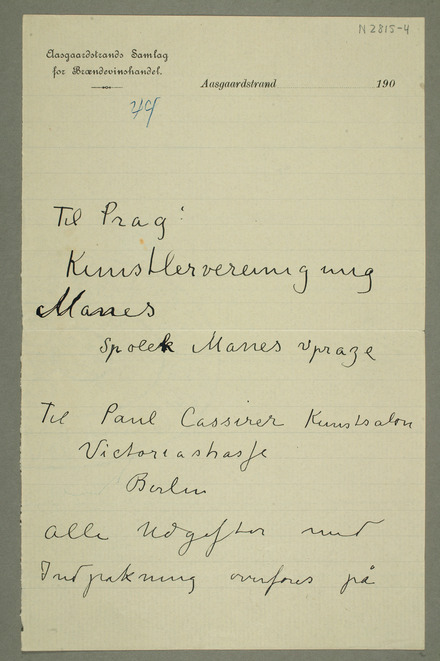 N 2815-4
Aasgaardstrands Samlag
for Brændevinshandel.
Aasgaardstrand 190
Til Prag:
Kunstlervereinigung
Manes
Spolek Manes v praze
Til Paul Cassirer Kunstsalon
Victoriastrasse
Berlin
Alle Udgifter med
Indpakning overføres på